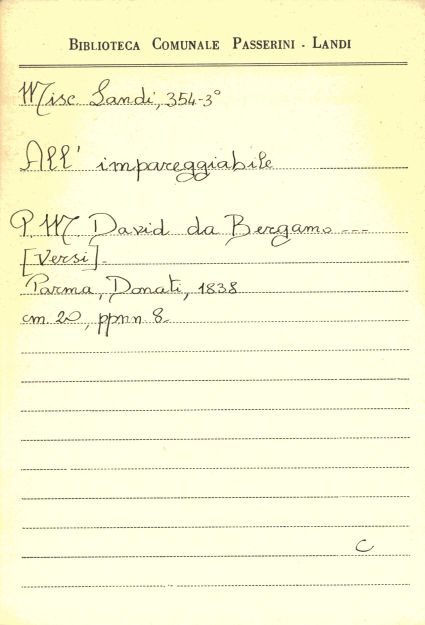 BIBLIOTECA COMUNALE PASSERINI - LANDI
Misc Landi, 354-3°
All' impareggiabile
P. M David da Bergamo ---
[Versi].
Parma, Donati, 1838
cm. 20, ppnn 8.
C